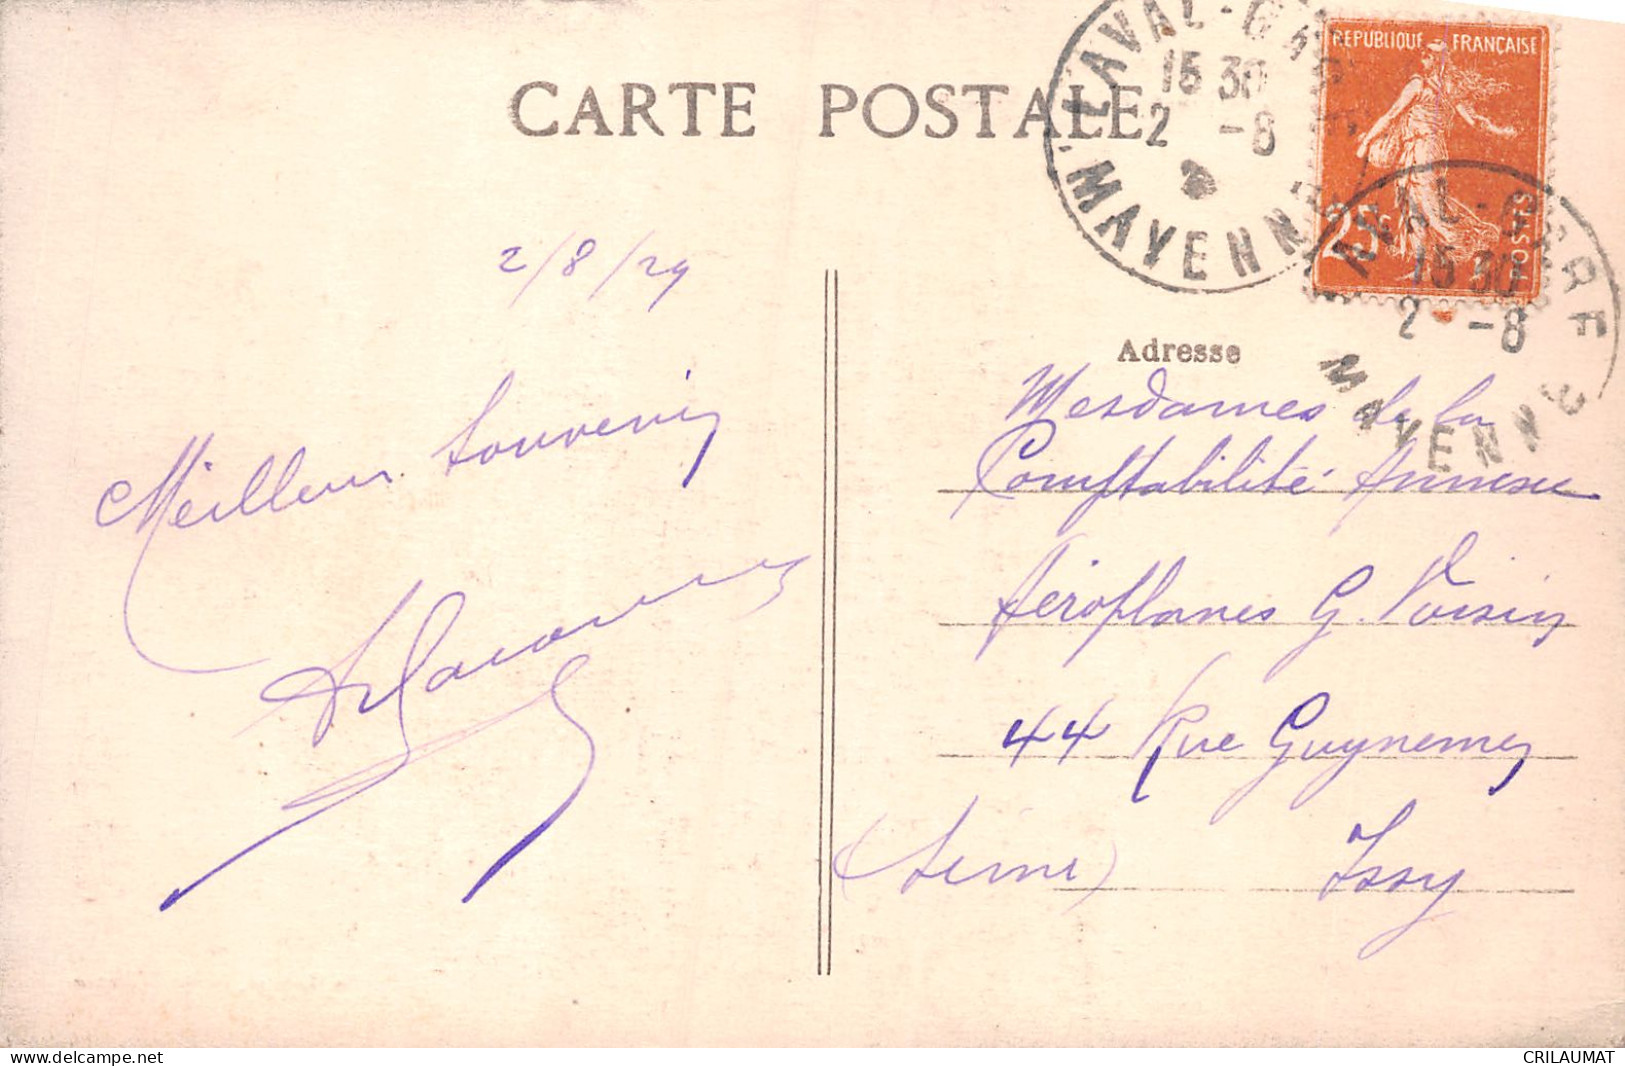 CARTE POSTALE
LAVAL-GARE
15 30
2 -8
MAYENNE
REPUBLIQUE FRANÇAISE
25c
POSTES
LAVAL-GARE
15 30
2 -8
MAYENNE
2/8/29
Meilleur Souvenir
Adresse
Mesdames de la
Comptabilité Annexe
Aéroplanes G. Voisin
44 Rue Guynemer
(Seine) Issy
delcampe.net
CRILAUMAT